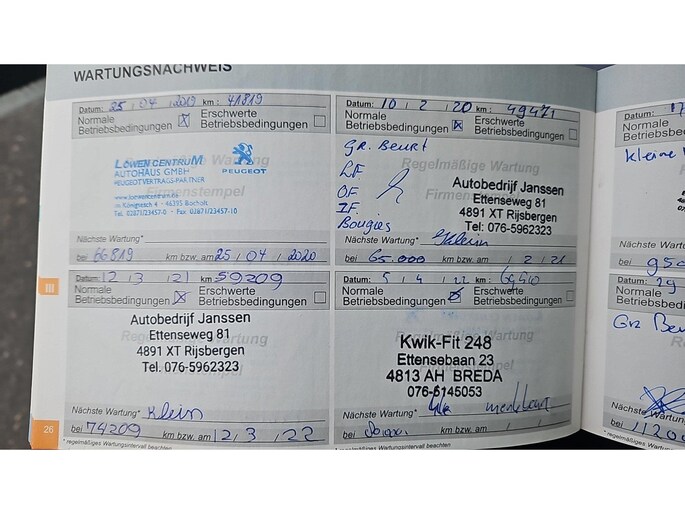 WARTUNGSNACHWEIS
Datum: 25 / 04 / 2019 km: 41819
Normale Betriebsbedingungen X Erschwerte Betriebsbedingungen
Regelmäßige Wartung
Firmenstempel
LÖWEN CENTRUM
AUTOHAUS GMBH
PEUGEOT VERTRAGS-PARTNER
PEUGEOT
46395 Bocholt
Tel. 02871/23457-0 • Fax 02871/23457-10
Nächste Wartung*
bei 66819 km bzw. am 25 / 04 / 2020
Datum: 10 / 2 / 20 km: 49471
Normale Betriebsbedingungen X Erschwerte Betriebsbedingungen
Regelmäßige Wartung
Firmenstempel
GR. Beurt
LF
OF
IF
Bougies
Autobedrijf Janssen
Ettenseweg 81
4891 XT Rijsbergen
Tel: 076-5962323
Nächste Wartung* Klein
bei 65.000 km bzw. am / 2 / 21
Datum: 12 / 3 / 21 km: 59209
Normale Betriebsbedingungen X Erschwerte Betriebsbedingungen
Autobedrijf Janssen
Ettenseweg 81
4891 XT Rijsbergen
Tel. 076-5962323
Nächste Wartung* Klein
bei 74209 km bzw. am 12 / 3 / 22
Datum: 5 / 4 / 22 km:
Normale Betriebsbedingungen X Erschwerte Betriebsbedingungen
Kwik-Fit 248
Ettensebaan 23
4813 AH BREDA
076-5145053
Nächste Wartung*
bei km bzw. am / /
* regelmäßiges Wartungsintervall beachten
* regelmäßiges Wartungsintervall beachten
III
26
Datum:
Normale
Betriebsbedingungen
Kleine
Nächste Wartung
bei 950
Datum: 29
Normale
Betriebsbedingung
Grz Beu
Nächste Wartung*
bei 11200
* regelmäßiges Wartungs